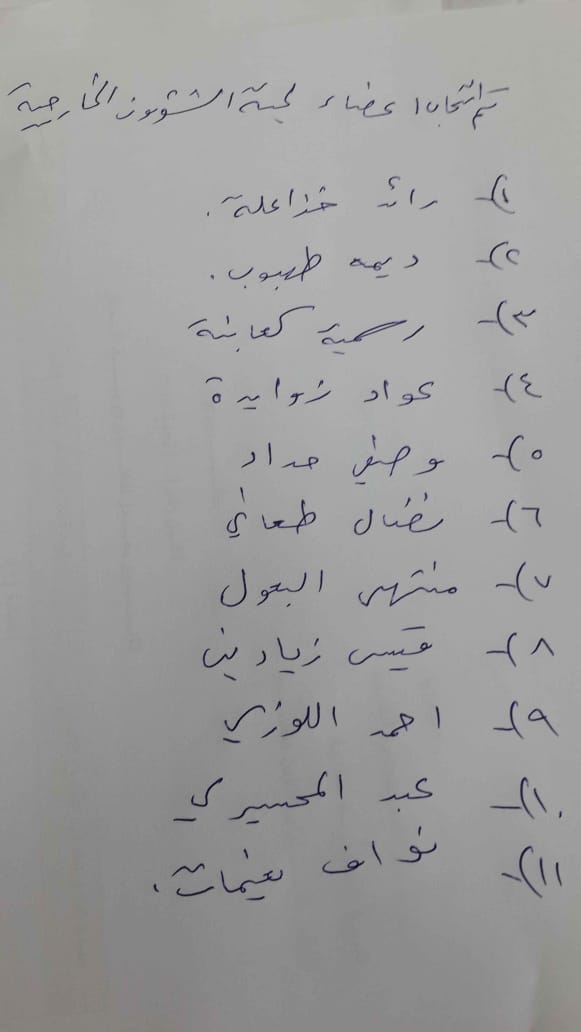 تم انتخاب اعضاء لجنة الشؤون الخارجية
١)- رائد خزاعلة.
٢)- ديمه طهبوب.
٣)- رسمية كعابنة
٤)- عواد زوايدة
٥)- وصفي حداد
٦)- نضال طعاني
٧)- منتهى البعول
٨)- قيس زيادين
٩)- احمد اللوزي
١٠)- عبد المحسيري
١١)- نواف نعيمات.